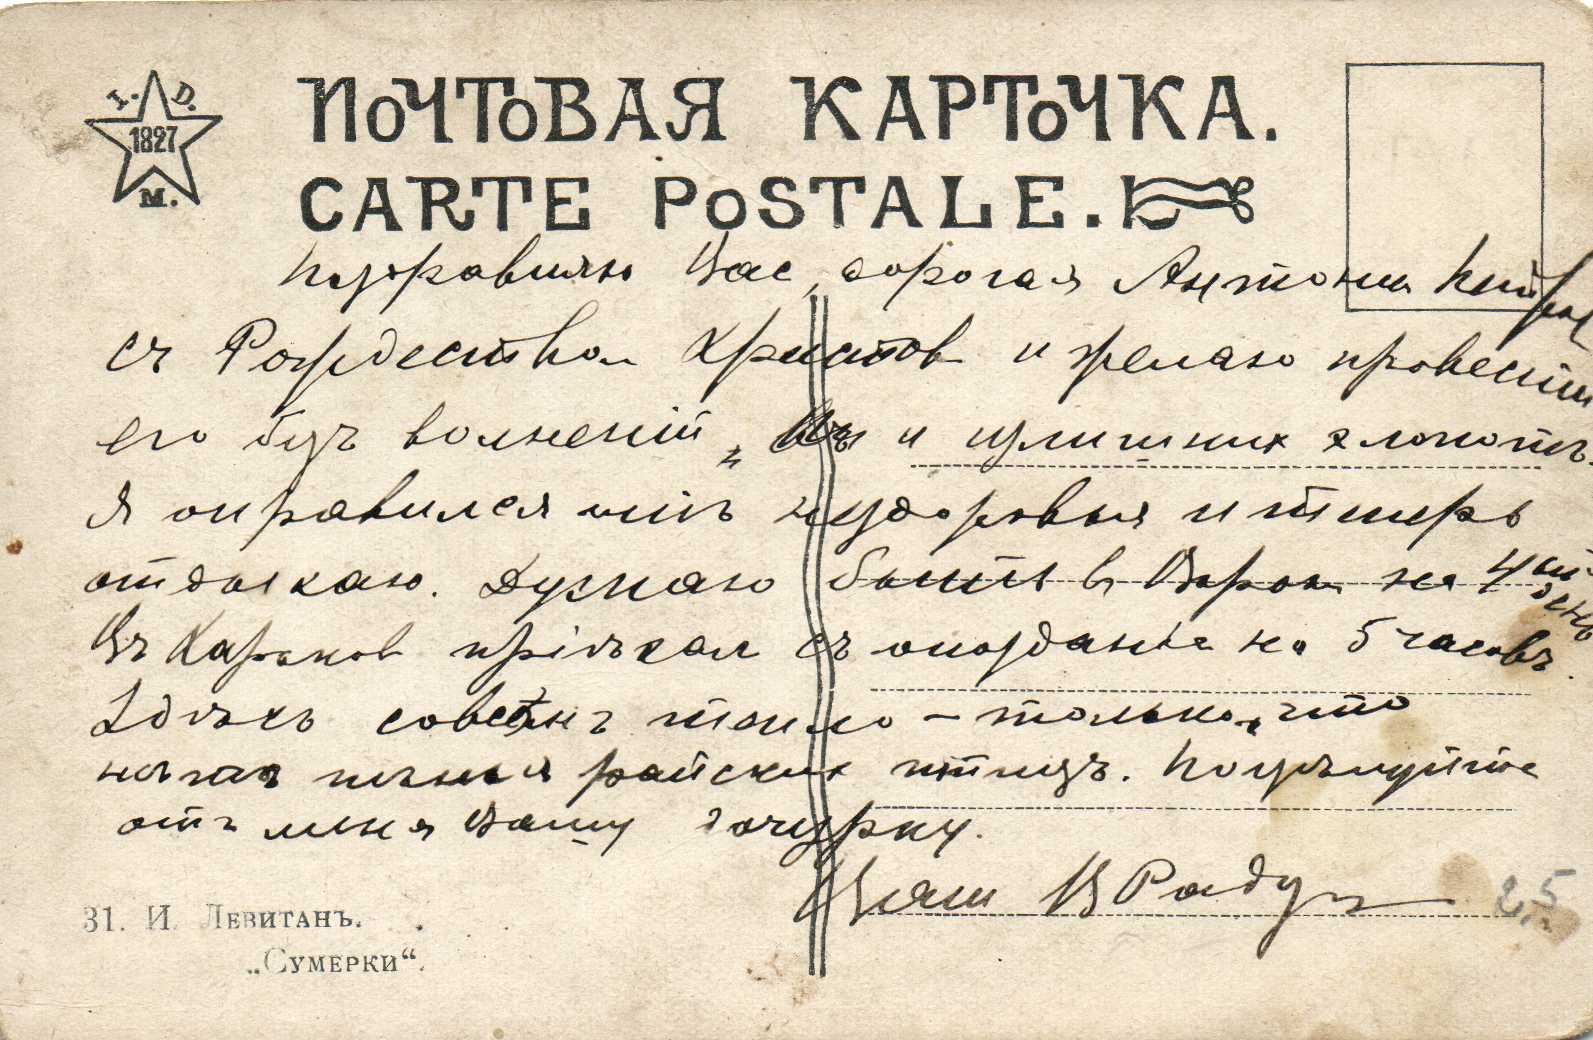 I. D.
1827
M.
ПОЧТОВАЯ КАРТОЧКА.
CARTE POSTALE.
Поздравляю Вас, дорогая Антонина
съ Рождеством Христов и желаю провести
его безъ волненій и излишних хлопотъ.
Я оправился отъ нездоровья и теперь
отдыхаю. Думаю быть в на 4ый день
Въ Харьков пріѣхал съ опозданіем на 5 часовъ.
Здѣсь совсѣмъ тепло – только что
нѣтъ пѣнья райских птицъ. Поцѣлуйте
отъ меня Вашу дочурку.
Ваш В Раду
2,5
31. И. Левитанъ.
„Сумерки“.